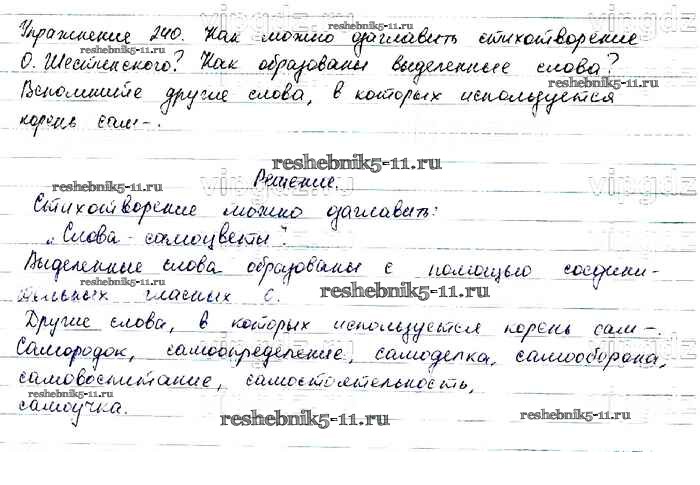 Упражнение 240. Как можно озаглавить стихотворение
reshebnik5-11.ru
О. Шестинского? Как образованы выделенные слова?
Вспомните другие слова, в которых используется
корень сам-.
reshebnik5-11.ru
reshebnik5-11.ru
Решение.
reshebnik5-11.ru
Стихотворение можно озаглавить:
"Слова-самоцветы".
Выделенные слова образованы с помощью соедини-
reshebnik5-11.ru
тельных гласных с.
reshebnik5-11.ru
Другие слова, в которых используется корень сам-.
reshebnik5-11.ru
Самородок, самоопределение, самоделка, самооборона,
самовоспитание, самостоятельность,
reshebnik5-11.ru
самоучка.
reshebnik5-11.ru
reshebnik5-11.ru